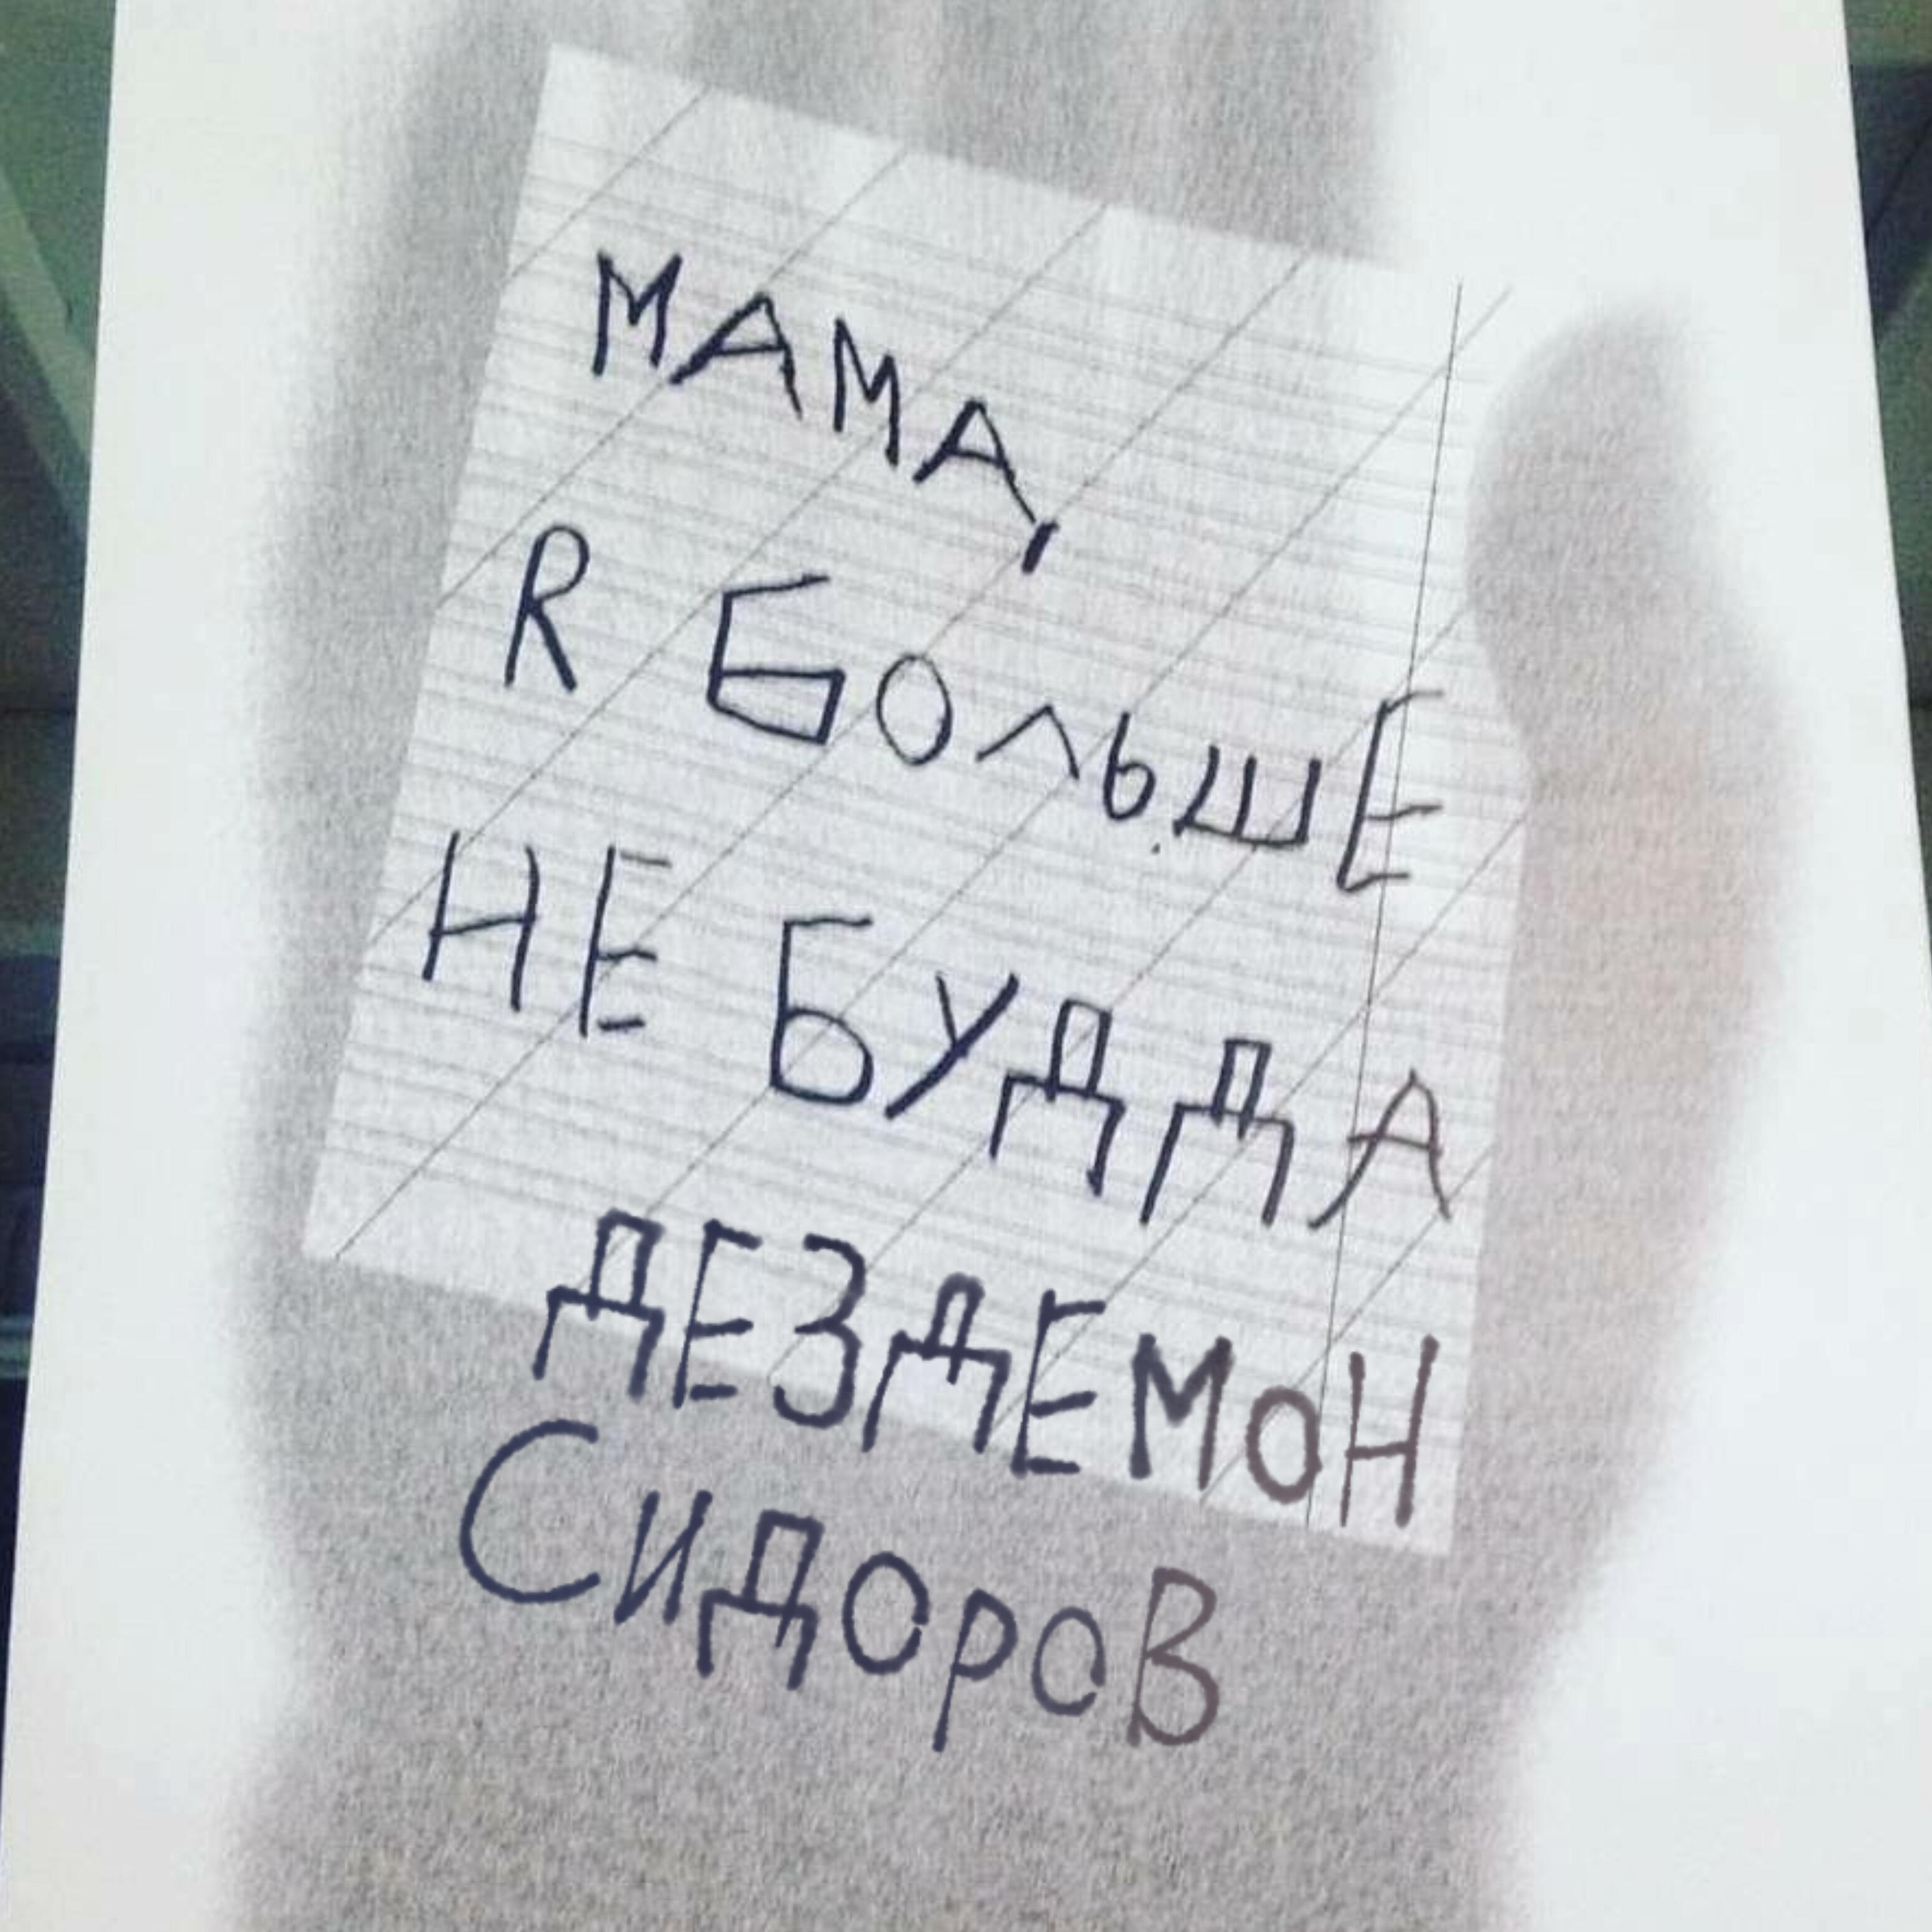 МАМА,
R БОЛЬШЕ
НЕ БУДДА
ДЕЗДЕМОН
СИДОРОВ